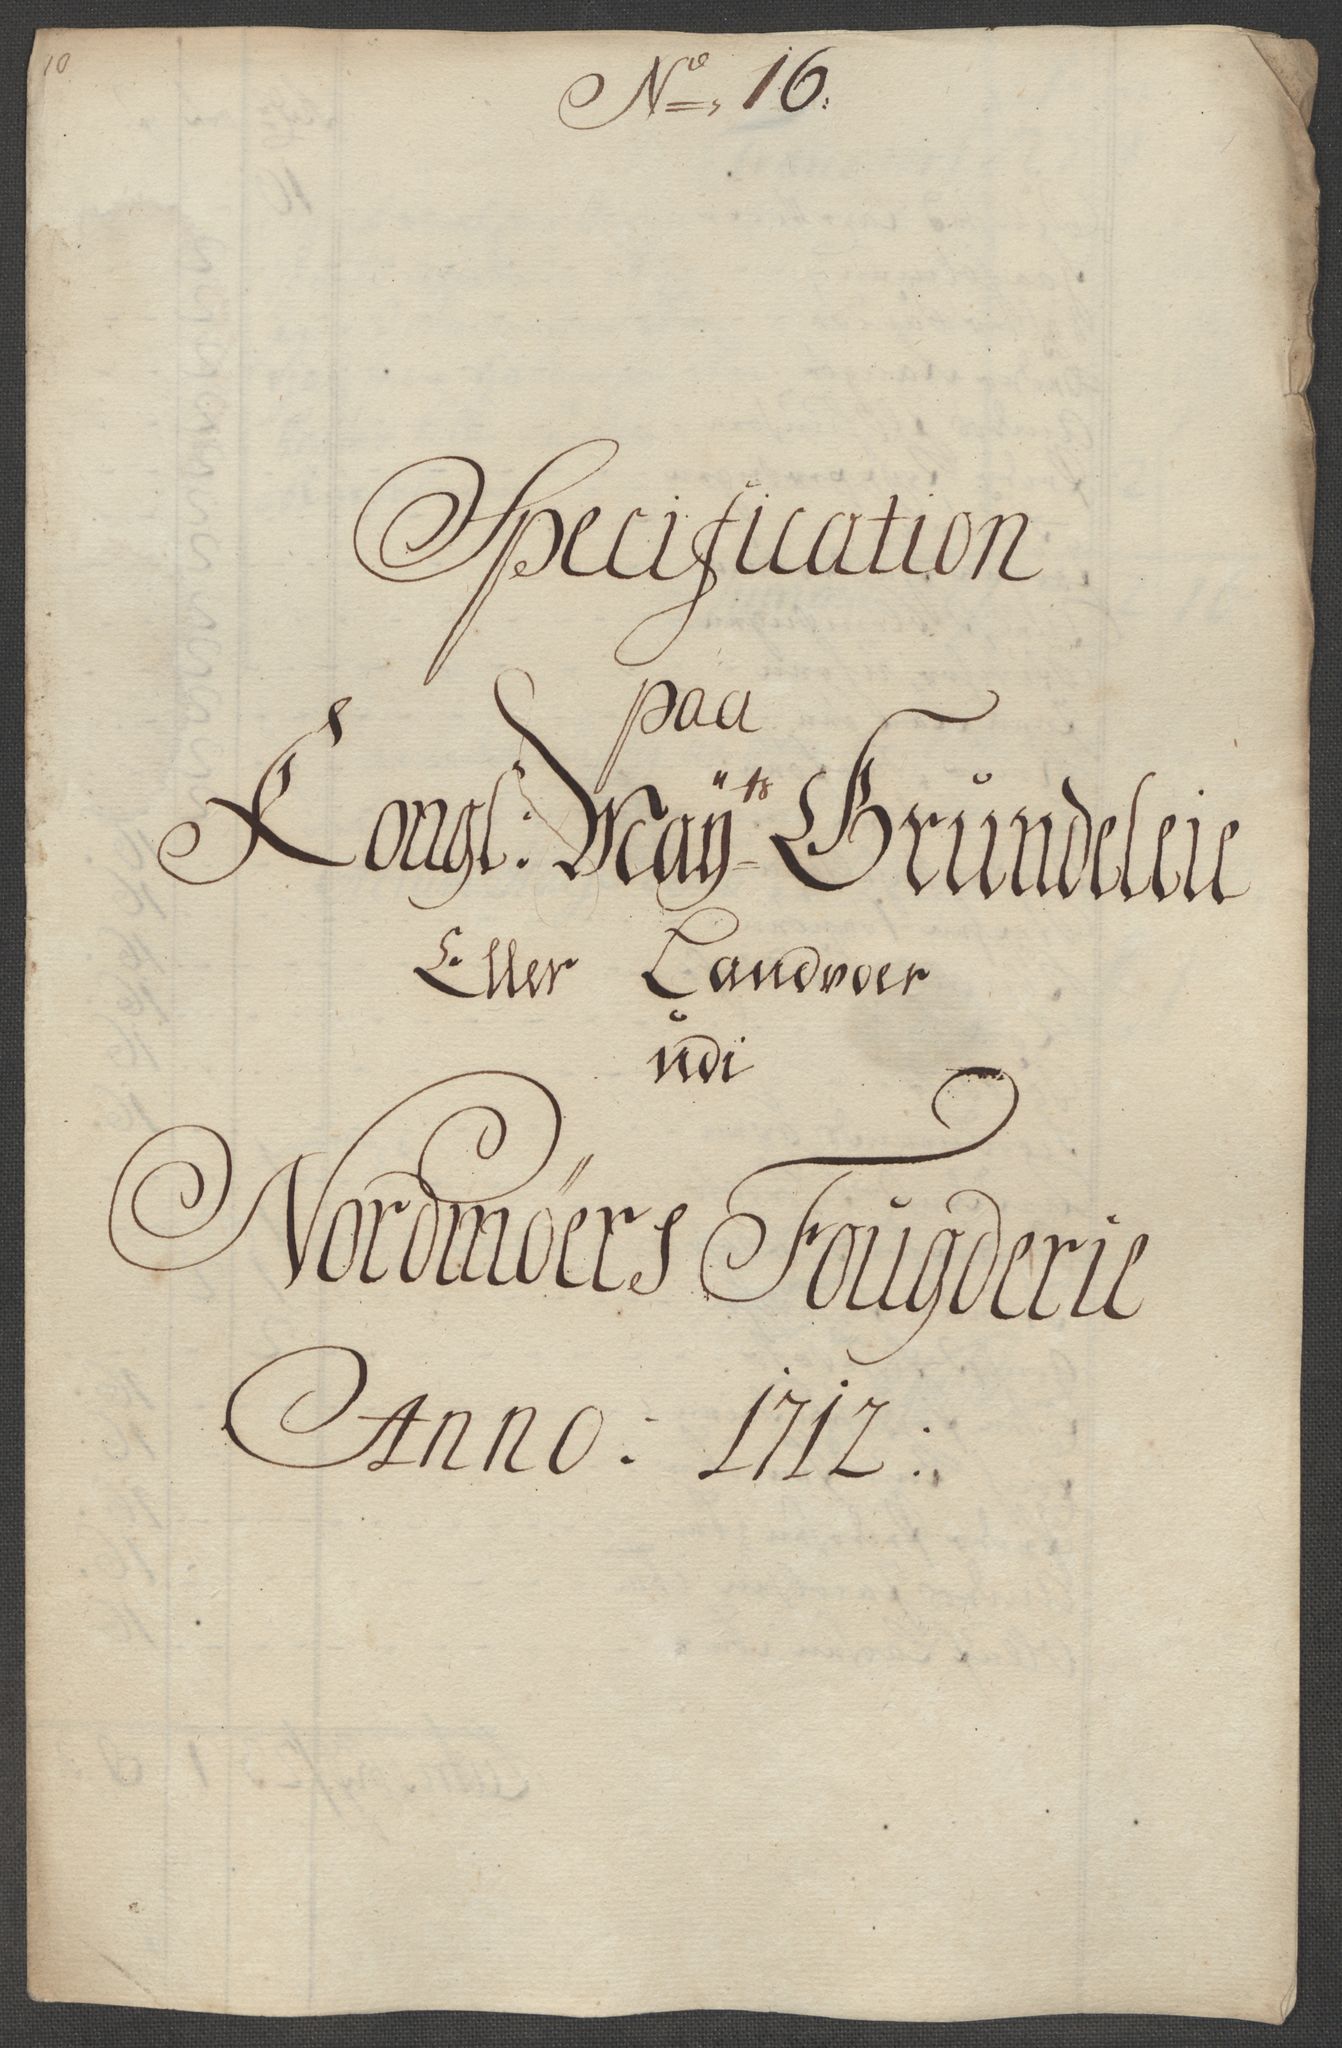 10
No, 16:
Specification
paa
Kongl: Maÿts Grŭndeleie
Eller Landvoer
ŭdi
Nordmöers Foŭgderie
Anno: 1712: